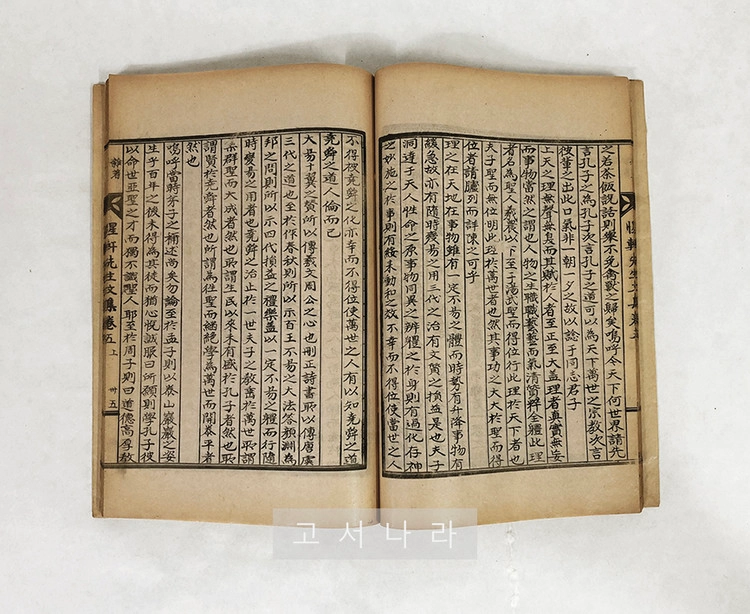 惺軒先生文集卷五
之若茶飯說話則擧不免禽獸之歸矣嗚呼今天下何世界請先
言孔子之爲孔子次言孔子之道可以爲天下萬世之宗教次言
彼輩之出此口氣非一朝一夕之故以諗于同志君子
上天之理無聲無臭而其賦於人者至正至大盖理者眞實無妄
而事物當然之謂也人物之生職職藝藝而氣清質粹全體此理
者名爲聖人羲農以下至于湯武聖而得位行此理於天下者也
夫子聖而無位明此理於萬世者也然其事功之大大於聖而得
位者請臚列而詳陳之可乎
理之在天地在事物雖有一定不易之體而時勢有升降事物有
緩急故亦有隨時變易之用三代之治有文質之損益是也夫子
洞達于天人性命之原事物同異之辨體之於身則有過化存神
之妙施之於事則有綏來動和之效不幸而不得位使當世之人
不得被堯舜之化亦幸而不得位使萬世之人有以知堯舜之道
堯舜之道人倫而已
大易十翼之贊所以傳羲文周公之心也刪正詩書所以傳唐虞
三代之道也至於作春秋則所以示百王不易之大法答顏淵爲
邦之問則所以示四代損益之禮樂盖以一定不易之體而行隨
時變易之用者也堯舜之治止於一世夫子之教垂於萬世所謂
集群聖而大成者然也所謂生民以來未有盛於孔子者然也所
謂賢於堯舜者然也所謂爲往聖而繼絶學爲萬世而開泰平者
然也
嗚呼當時弟子之稱述尚矣勿論至於孟子則以泰山巖巖之姿
生乎百年之後未得爲其徒而猶心悅誠服曰所願則學孔子彼
以命世亞聖之才而獨不識聖人耶至於周子則曰道德高厚教
雜著
惺軒先生文集卷五 上 卅五
고서나라